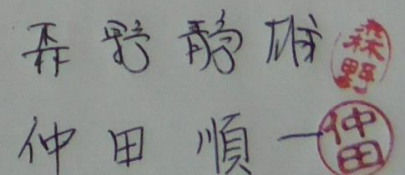 森野静雄 森野
仲田順一 仲田